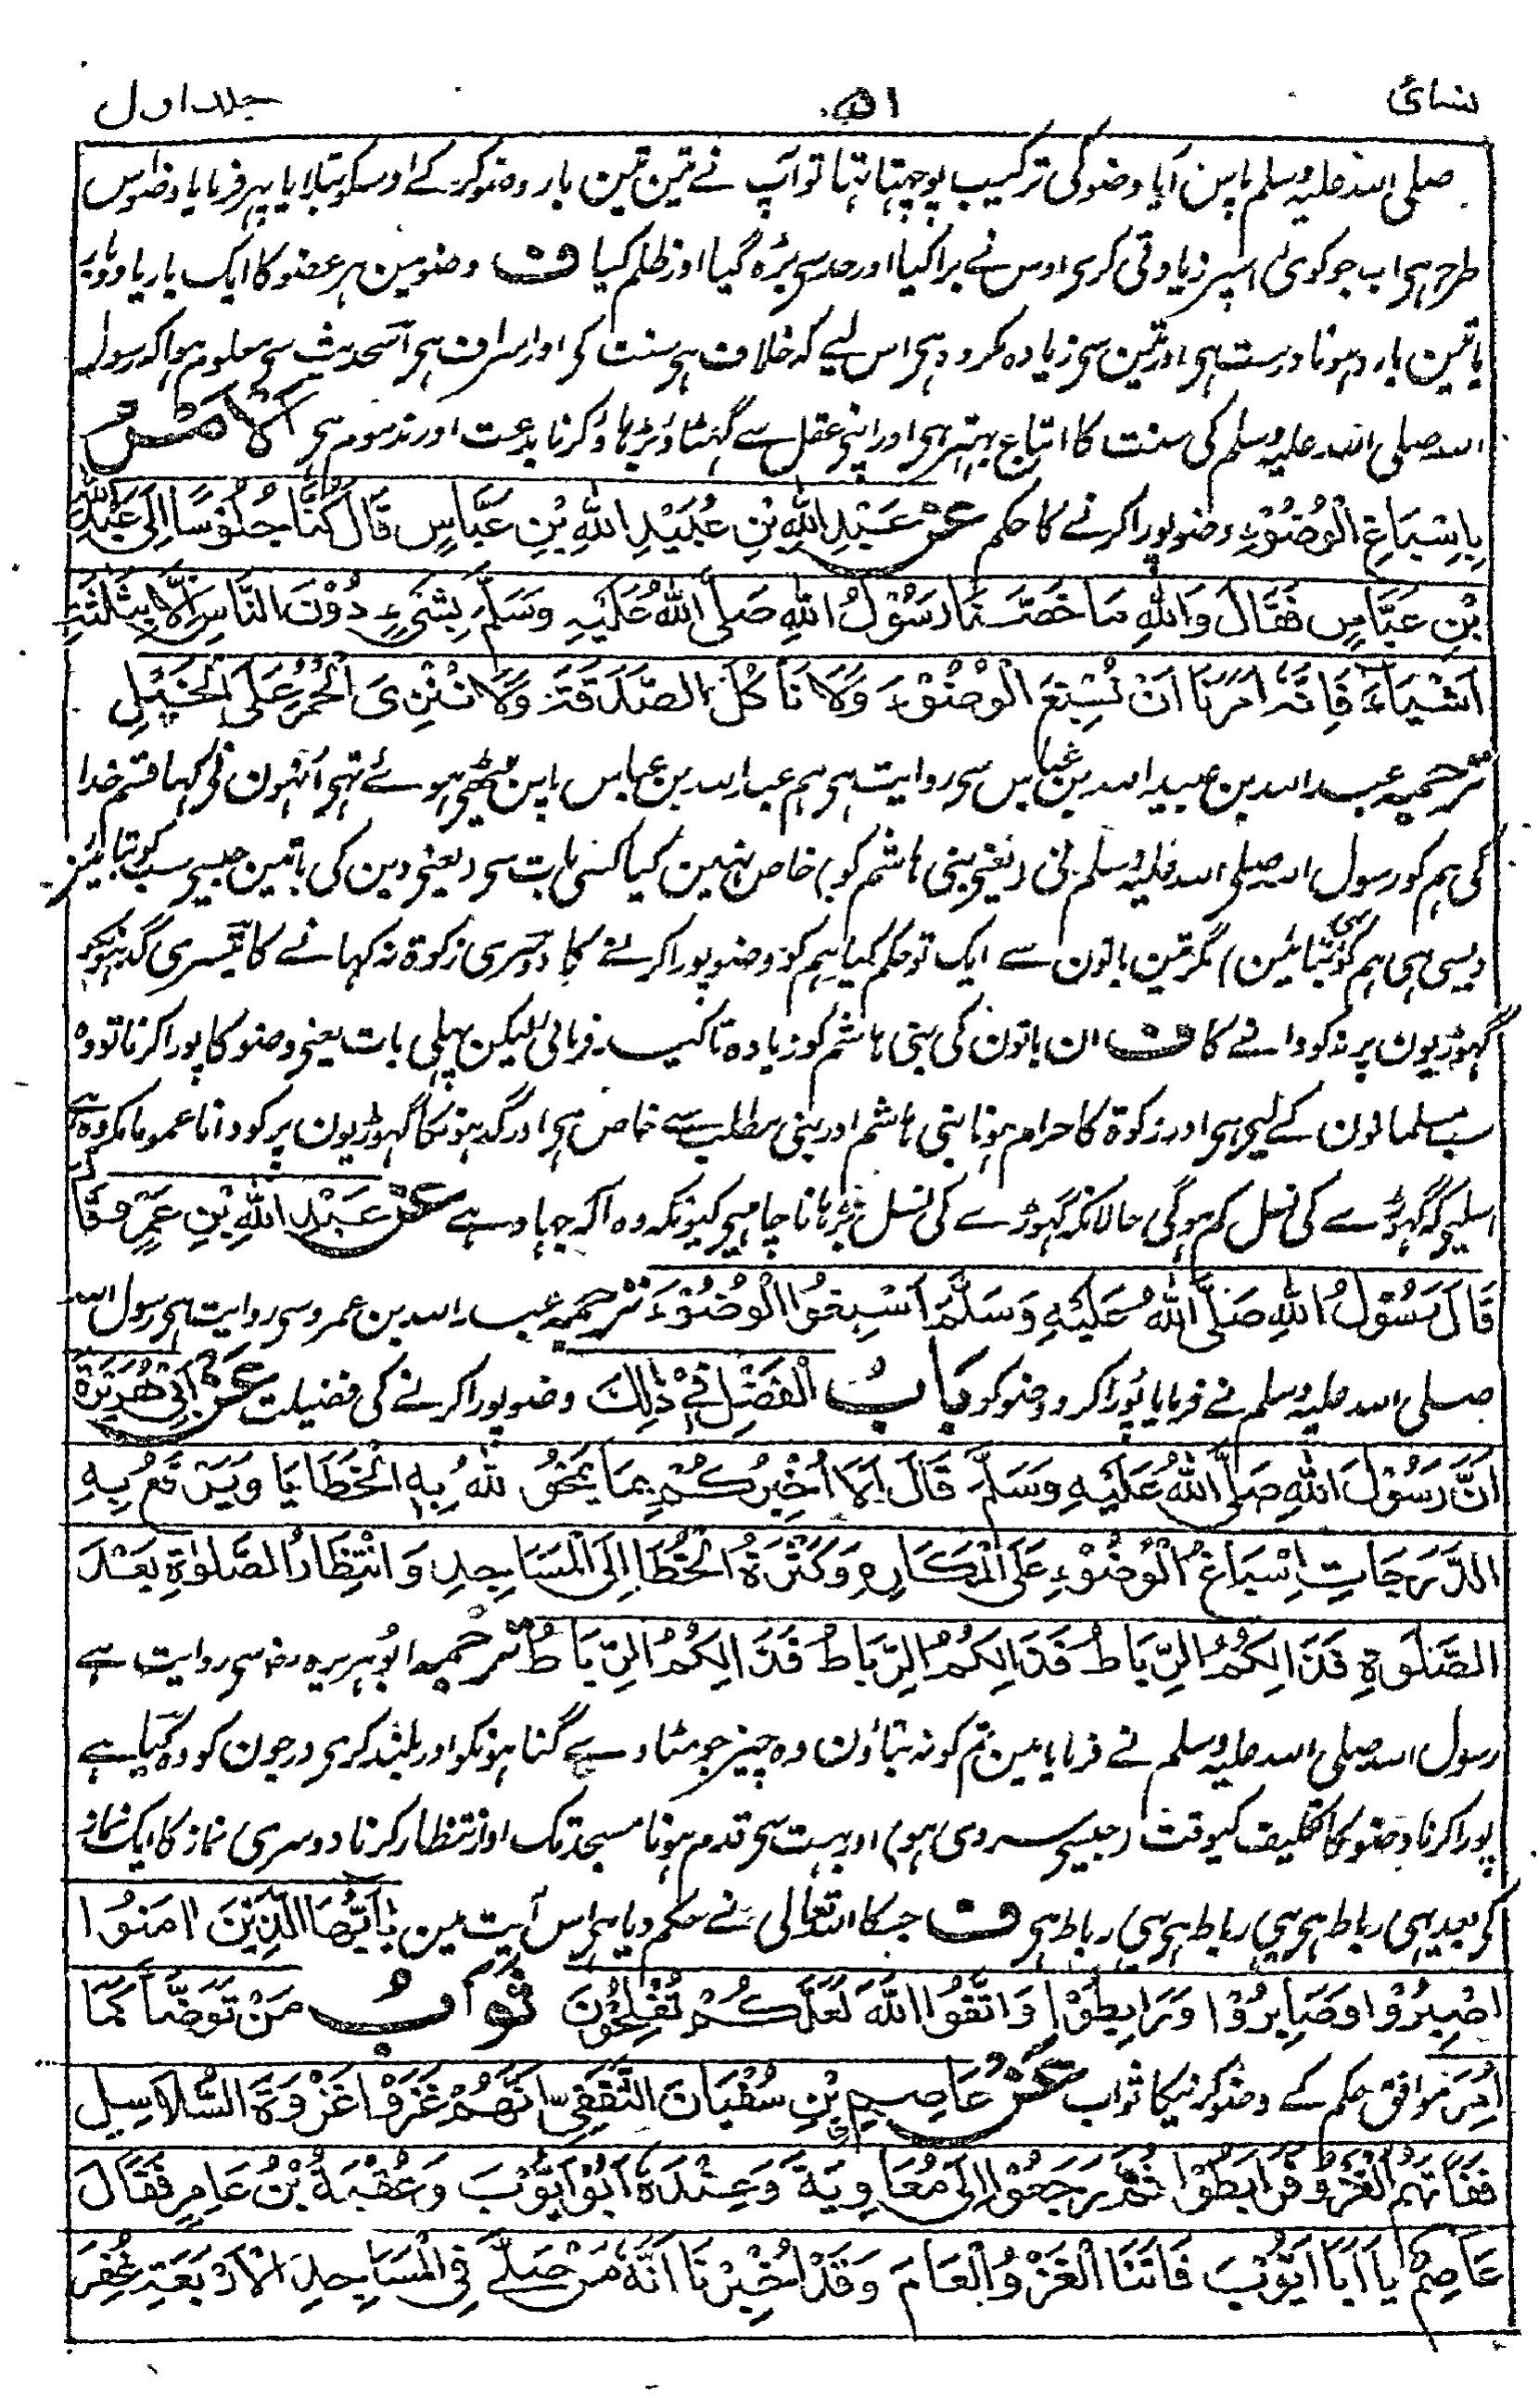 نسائی ۵۱ جلد اول
صلی اللہ علیہ وسلم پاس آیا وضو کی ترکیب پوچہتا تہا تو آپ نے تین تین بار وضو کر کے اوسکو بتلایا پہر فرمایا وضو اس
طرح ہی اب جو کوئی اسپر زیادتی کری اوس نے برا کیا اور حد سی بڑہ گیا اور ظلم کیا ف وضو مین ہر عضو کا ایک بار یا دو بار
یا تین بار دہونا درست ہی اور تین سی زیادہ مکروہ ہی اس لیے کہ خلاف ہی سنت کی اور اسراف ہی اسحدیث سی معلوم ہوا کہ رسول
اللہ صلی اللہ علیہ وسلم کی سنت کا اتباع بہتر ہی اور اپنی عقل سے گہٹاؤ بڑہاؤ کرنا بدعت اور مذموم ہی الامر
بِاِسْبَاغِ الْوُضُوْءِ وضو پورا کرنے کا حکم عَنْ عَبْدِ اللّٰهِ بْنِ عُبَيْدِ اللّٰهِ بْنِ عَبَّاسٍ قَالَ كُنَّا جُلُوْسًا اِلٰى عَبْدِ اللّٰهِ
بْنِ عَبَّاسٍ فَقَالَ وَاللّٰهِ مَا خَصَّنَا رَسُوْلُ اللّٰهِ صَلَّى اللّٰهُ عَلَيْهِ وَسَلَّمَ بِشَيْءٍ دُوْنَ النَّاسِ اِلَّا بِثَلٰثَةِ
اَشْيَاءَ فَاِنَّهٗ اَمَرَنَا اَنْ نُسْبِغَ الْوُضُوْءَ وَلَا نَأْكُلَ الصَّدَقَةَ وَلَا نُنْزِىَ الْحُمُرَ عَلَى الْخَيْلِ
ترجمہ عبد اللہ بن عبید اللہ بن عباس سی روایت ہی ہم عبد اللہ بن عباس پاس بیٹھی ہوئے تہی اُنہون نی کہا قسم خدا
کی ہم کو رسول اللہ صلی اللہ علیہ وسلم نی (یعنی بنی ہاشم کو) خاص نہین کیا کسی بات سی (یعنی دین کی باتین جیسی سب کو بتائین
ویسی ہی ہم کو بھی بتائین) مگر تین باتون سے ایک تو حکم کیا ہم کو وضو پورا کرنے کا دوسری زکوۃ نہ کہانے کا تیسری گدہونکو
گہوڑیون پر نہ کودانے کا ف ان باتون کی بنی ہاشم کو زیادہ تاکید فرمائی لیکن پہلی بات یعنی وضو کا پورا کرنا تو وہ
سب مسلمانون کے لیی ہی اور زکوۃ کا حرام ہونا بنی ہاشم اور بنی مطلب سے خاص ہی اور گدہونکا گہوڑیون پر کودانا عموما مکروہ ہے
اسلیو کہ گہوڑے کی نسل کم ہوگی حالانکہ گہوڑے کی نسل بڑہانا چاہیی کیونکہ وہ آلہ جہاد ہے عَنْ عَبْدِ اللّٰهِ بْنِ عَمْرٍو قَالَ
قَالَ رَسُوْلُ اللّٰهِ صَلَّى اللّٰهُ عَلَيْهِ وَسَلَّمَ اَسْبِغُوا الْوُضُوْءَ ترجمہ عبد اللہ بن عمرو سی روایت ہی رسول اللہ
صلی اللہ علیہ وسلم نے فرمایا پورا کرو وضو کو بَابُ الْفَضْلِ فِيْ ذٰلِكَ وضو پورا کرنے کی فضیلت عَنْ اَبِيْ هُرَيْرَةَ
اَنَّ رَسُوْلَ اللّٰهِ صَلَّى اللّٰهُ عَلَيْهِ وَسَلَّمَ قَالَ اَلَا اُخْبِرُكُمْ بِمَا يَمْحُو اللّٰهُ بِهِ الْخَطَايَا وَيَرْفَعُ بِهِ
الدَّرَجَاتِ اِسْبَاغُ الْوُضُوْءِ عَلَى الْمَكَارِهِ وَكَثْرَةُ الْخُطَا اِلَى الْمَسَاجِدِ وَانْتِظَارُ الصَّلٰوةِ بَعْدَ
الصَّلٰوةِ فَذَالِكُمُ الرِّبَاطُ فَذَالِكُمُ الرِّبَاطُ فَذَالِكُمُ الرِّبَاطُ ترجمہ ابو ہریرہ رض سی روایت ہے
رسول اللہ صلی اللہ علیہ وسلم نے فرمایا مین تم کو نہ بتاؤن وہ چیز جو مٹا دے گناہونکو اور بلند کری درجون کو وہ کیا ہے
پورا کرنا وضو کا تکلیف کیوقت (جیسی سردی ہو) اور بہت سی قدم ہونا مسجد تک اور انتظار کرنا دوسری نماز کا ایک نماز
کی بعد یہی رباط ہی یہی رباط ہی یہی رباط ہی ف جسکا اللہ تعالی نے حکم دیا ہی اس آیت مین يٰاَيُّهَا الَّذِيْنَ اٰمَنُوا
اصْبِرُوْا وَصَابِرُوْا وَرَابِطُوْا وَاتَّقُوا اللّٰهَ لَعَلَّكُمْ تُفْلِحُوْنَ ثَوَابُ مَنْ تَوَضَّأَ كَمَا
اُمِرَ موافق حکم کے وضو کرنیکا ثواب عَنْ عَاصِمِ بْنِ سُفْيَانَ الثَّقَفِيِّ اَنَّهُمْ غَزَوْا غَزْوَةَ السَّلَاسِلِ
فَفَاتَهُمُ الْغَزْوُ فَرَابَطُوْا ثُمَّ رَجَعُوْا اِلٰى مُعَاوِيَةَ وَعِنْدَهٗ اَبُوْ اَيُّوْبَ وَعُقْبَةُ بْنُ عَامِرٍ فَقَالَ
عَاصِمٌ يَا اَبَا اَيُّوْبَ فَاتَنَا الْغَزْوُ الْعَامَ وَقَدْ اُخْبِرْنَا اَنَّهٗ مَنْ صَلّٰى فِى الْمَسَاجِدِ الْاَرْبَعَةِ غُفِرَ